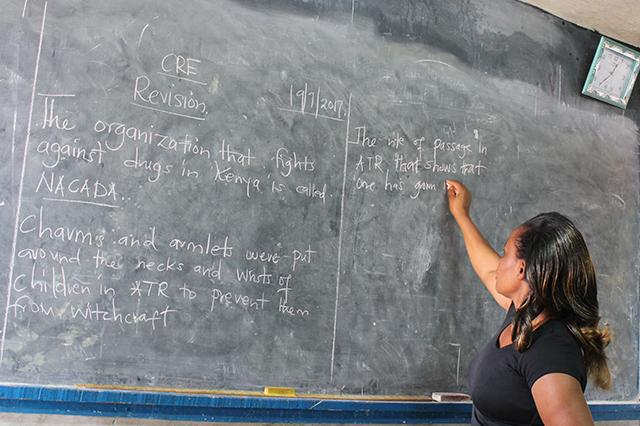 CRE
Revision
19/7/2017.
The organization that fights
against drugs in Kenya is called.
NACADA.
Charms and armlets were put
around the necks and wrists of
children in ATR to prevent them
from witchcraft
The rite of passage in
ATR that shows that
one has